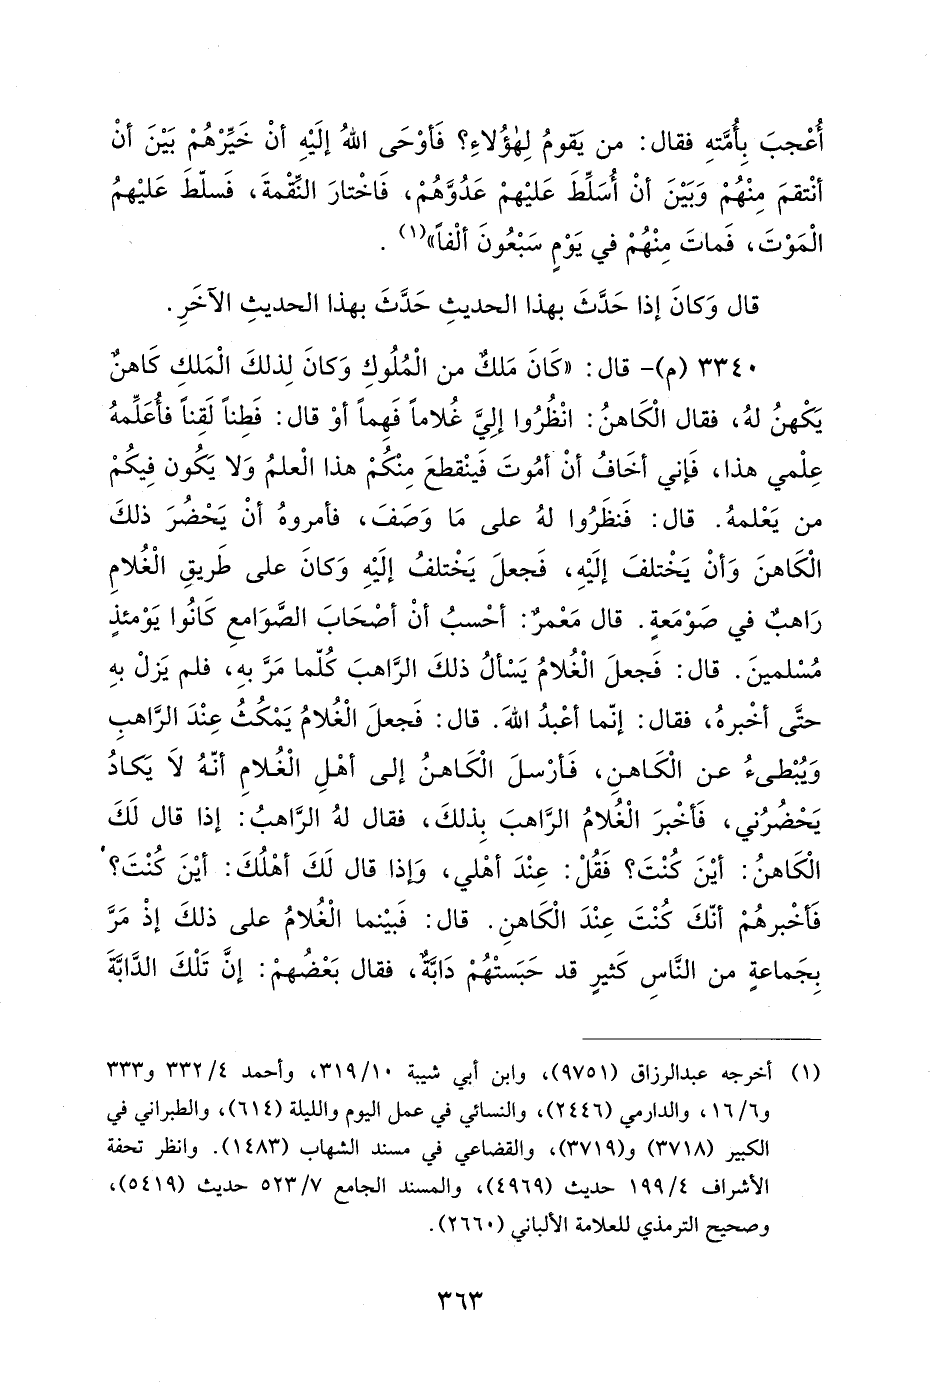 أُعْجبَ بِأُمَّتهِ فقال: من يَقومُ لِهٰؤُلاءِ؟ فَأوْحَى اللهُ إلَيْهِ أنْ خَيِّرْهُمْ بَيْنَ أنْ
أنْتقمَ مِنْهُمْ وَبَيْنَ أنْ أُسَلِّطَ عَليْهِمْ عَدُوَّهُمْ، فَاخْتارَ النِّقْمةَ، فَسلّطَ عَليْهِمُ
الْمَوْتَ، فَماتَ مِنْهُمْ في يَوْمٍ سَبْعُونَ ألْفاً»(١) .
قال وَكانَ إذا حَدَّثَ بهذا الحديثِ حَدَّثَ بهذا الحديثِ الآخَرِ.
٣٣٤٠ (م)- قال: «كَانَ مَلكٌ من الْمُلُوكِ وَكانَ لِذلكَ الْمَلكِ كَاهنٌ
يَكْهنُ لهُ، فقال الْكَاهنُ: انْظُرُوا إليَّ غُلاماً فَهِماً أوْ قال: فَطِناً لَقِناً فأُعَلِّمهُ
عِلْمي هذا، فَإني أخَافُ أنْ أمُوتَ فَينْقطعَ مِنكُمْ هذا الْعلمُ وَلا يَكُون فِيكُمْ
من يَعْلمهُ. قال: فَنظَرُوا لهُ على مَا وَصَفَ، فأمروهُ أنْ يَحْضُرَ ذلكَ
الْكَاهنَ وَأنْ يَخْتلفَ إلَيْهِ، فَجعلَ يَخْتلفُ إلَيْهِ وَكانَ على طَريقِ الْغُلامِ
رَاهبٌ في صَوْمَعةٍ. قال مَعْمرٌ: أحْسبُ أنْ أصْحَابَ الصَّوَامعِ كَانُوا يَوْمئذٍ
مُسْلمينَ. قال: فَجعلَ الْغُلامُ يَسْألُ ذلكَ الرَّاهبَ كُلّما مَرَّ بهِ، فلم يَزلْ بهِ
حتَّى أخْبرهُ، فقال: إنّما أعْبدُ اللهَ. قال: فَجعلَ الْغُلامُ يَمْكثُ عِنْدَ الرَّاهبِ
وَيُبْطيءُ عن الْكَاهنِ، فَأرْسلَ الْكَاهنُ إلى أهْلِ الْغُلامِ أنّهُ لاَ يَكادُ
يَحْضُرُني، فَأخْبرَ الْغُلامُ الرَّاهبَ بِذلكَ، فقال لهُ الرَّاهبُ: إذا قال لَكَ
الْكَاهنُ: أيْنَ كُنْتَ؟ فَقُلْ: عِنْدَ أهْلي، وَإذا قال لَكَ أهْلُكَ: أيْنَ كُنْتَ؟
فَأخْبرهُمْ أنّكَ كُنْتَ عِنْدَ الْكَاهنِ. قال: فَبيْنما الْغُلامُ على ذلكَ إذْ مَرَّ
بِجَماعةٍ من النَّاسِ كَثيرٍ قد حَبَستْهُمْ دَابَّةٌ، فقال بَعْضُهمْ: إنَّ تَلْكَ الدَّابَّةَ
(١) أخرجه عبدالرزاق (٩٧٥١)، وابن أبي شيبة ٣١٩/١٠، وأحمد ٣٣٢/٤ و٣٣٣
و١٦/٦، والدارمي (٢٤٤٦)، والنسائي في عمل اليوم والليلة (٦١٤)، والطبراني في
الكبير (٣٧١٨) و(٣٧١٩)، والقضاعي في مسند الشهاب (١٤٨٣). وانظر تحفة
الأشراف ١٩٩/٤ حديث (٤٩٦٩)، والمسند الجامع ٥٢٣/٧ حديث (٥٤١٩)،
وصحيح الترمذي للعلامة الألباني (٢٦٦٠).
٣٦٣